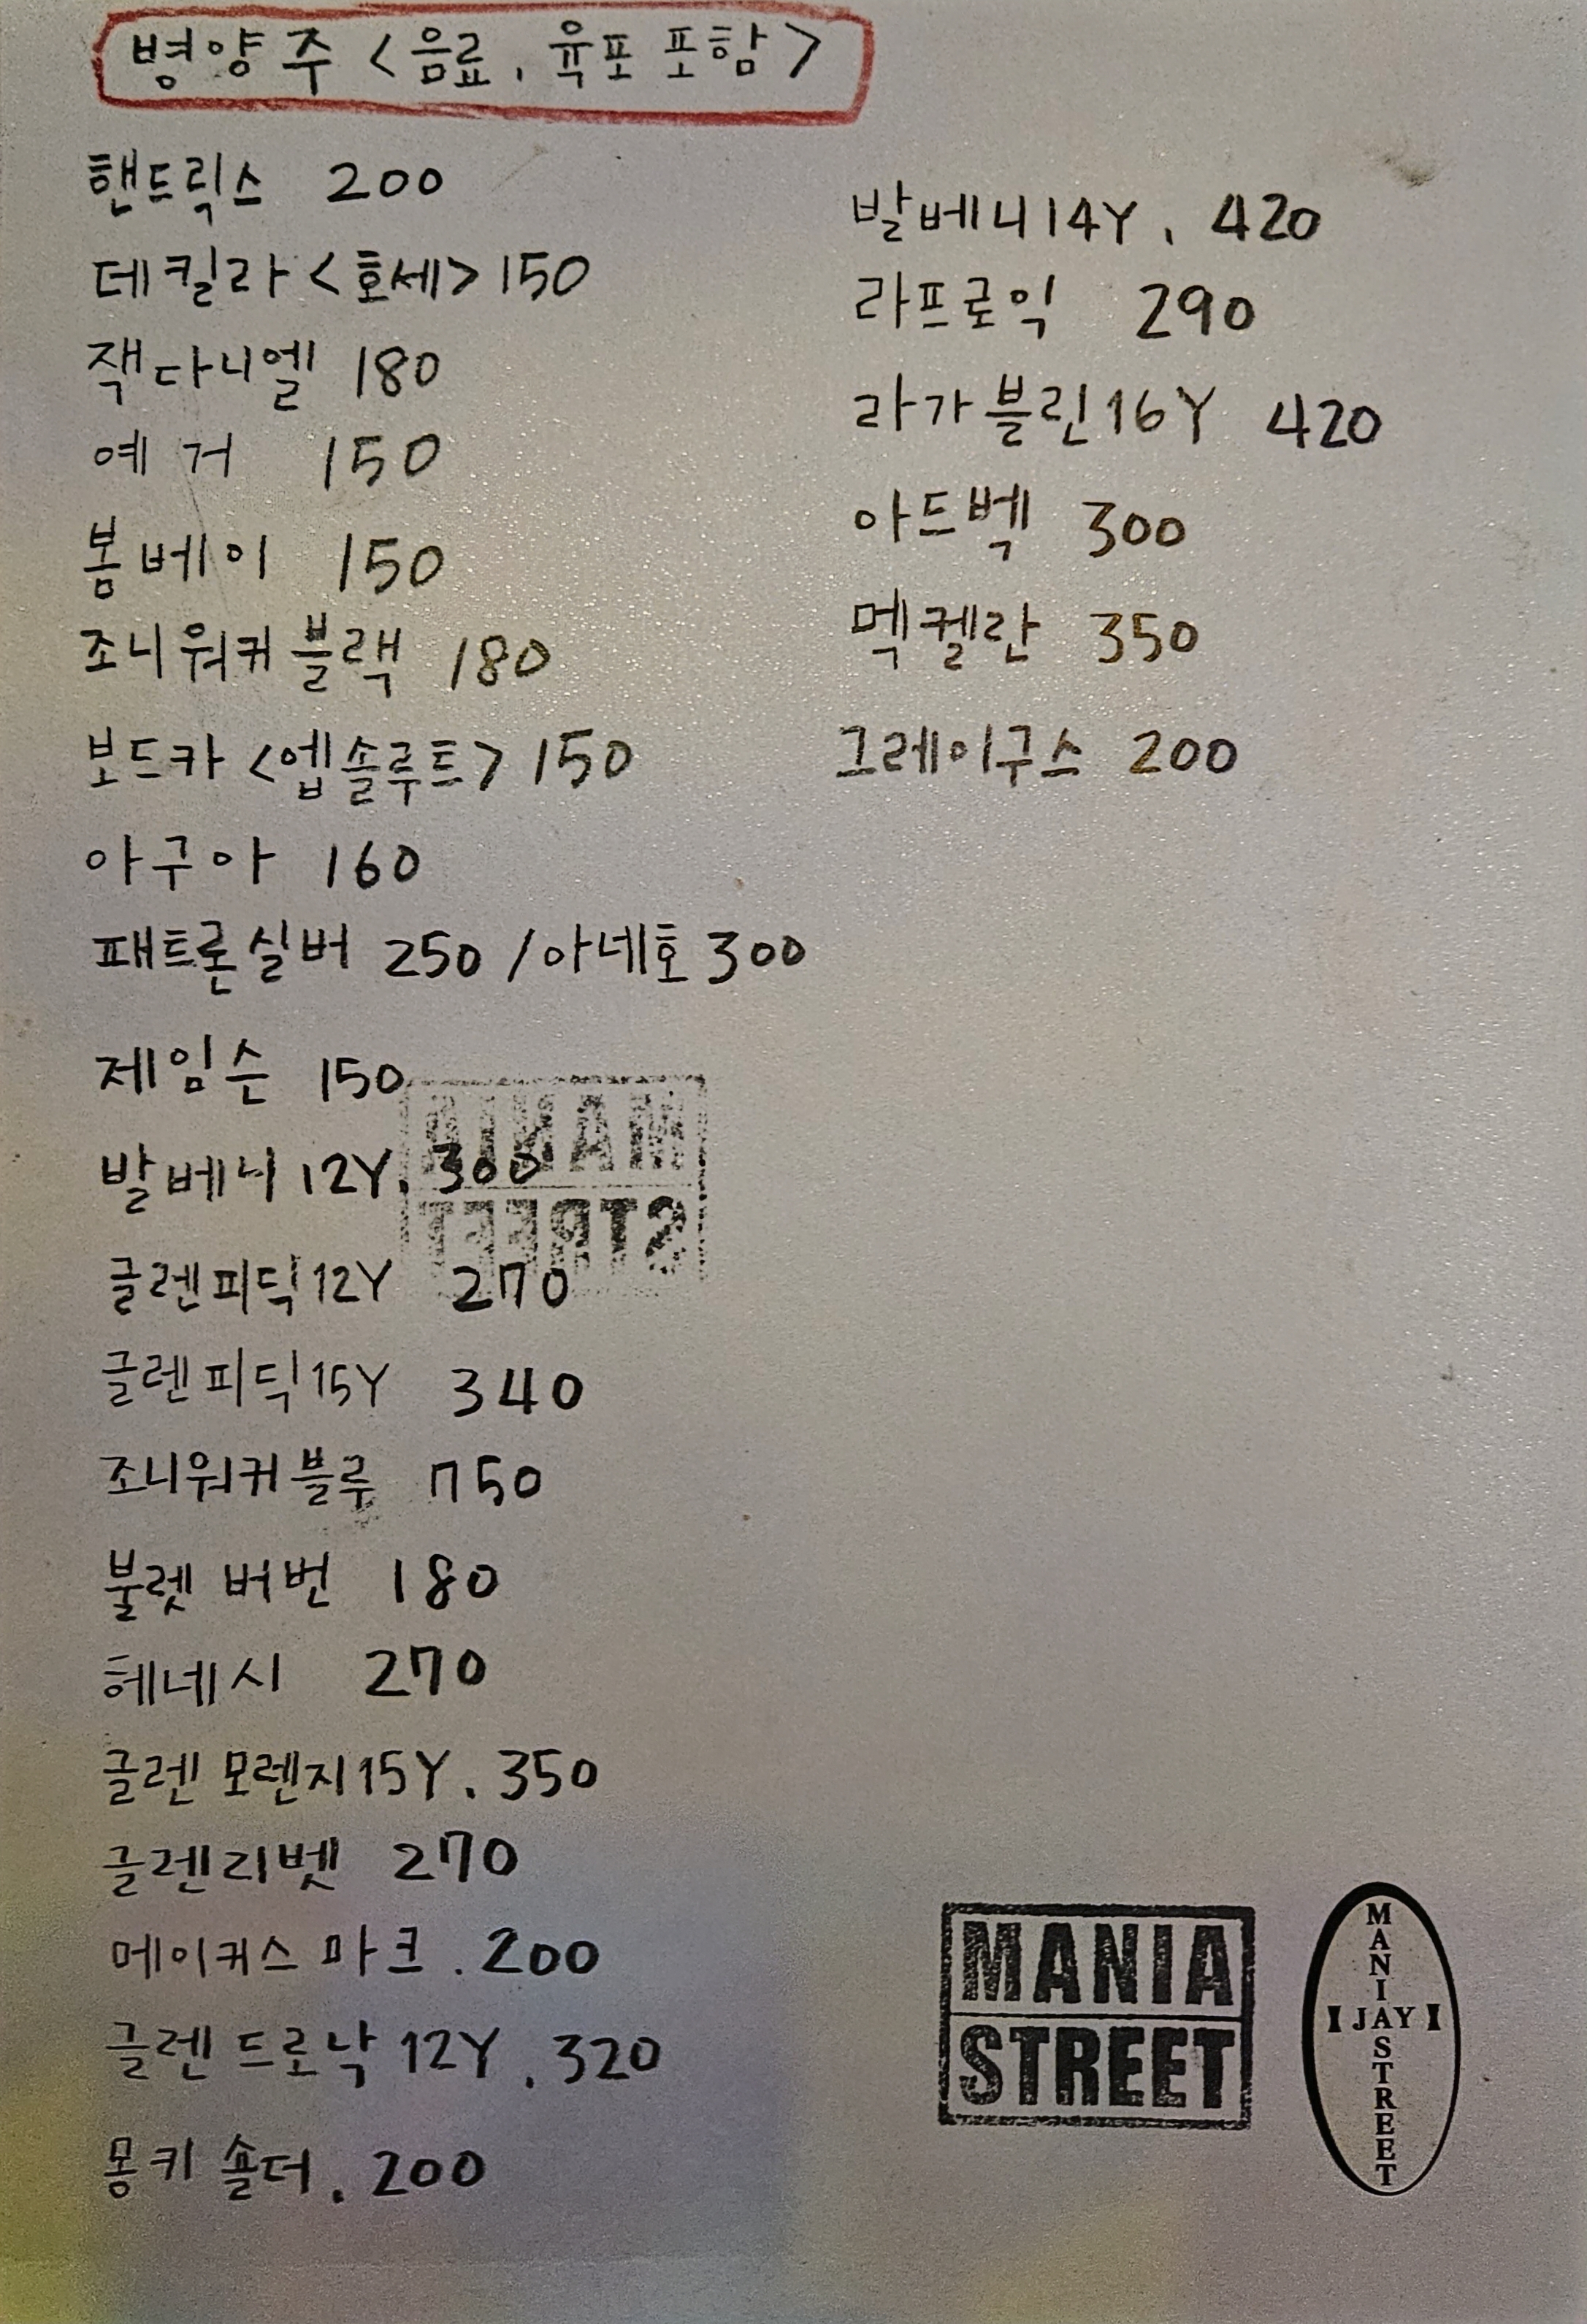 병양주 <음료, 육포 포함>
핸드릭스 200
데킬라 <호세> 150
잭다니엘 180
예거 150
봄베이 150
조니워커 블랙 180
보드카 <엡솔루트> 150
아구아 160
패트론실버 250 / 아네호 300
제임슨 150
발베니 12Y. 300
글렌피딕 12Y 270
글렌피딕 15Y 340
조니워커 블루 750
불렛 버번 180
헤네시 270
글렌 모렌지 15Y. 350
글렌리벳 270
메이커스 마크. 200
글렌 드로낙 12Y. 320
몽키 숄더. 200
발베니 14Y. 420
라프로익 290
라가불린 16Y 420
아드벡 300
멕켈란 350
그레이구스 200
MANIA
STREET
MANIA
STREET
MANIASTREET
JAY